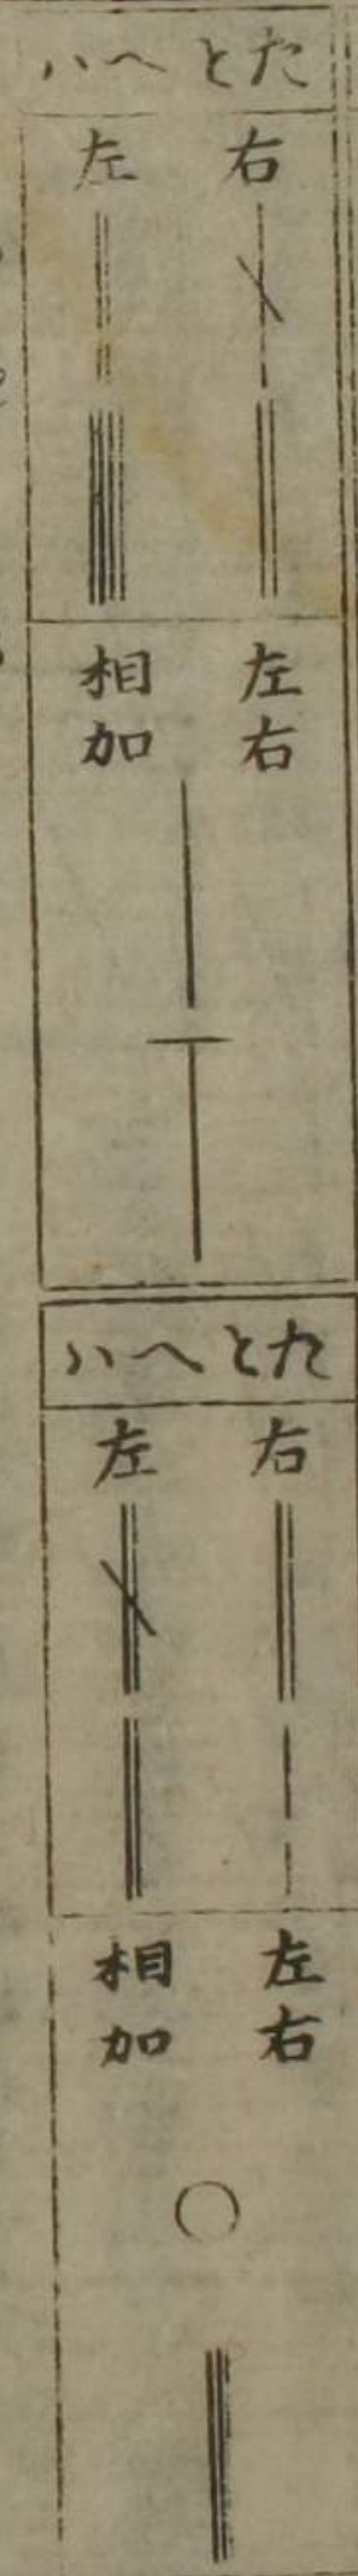 たとへハ
右
左
左右
相加
たとへハ
右
左
左右
相加
○